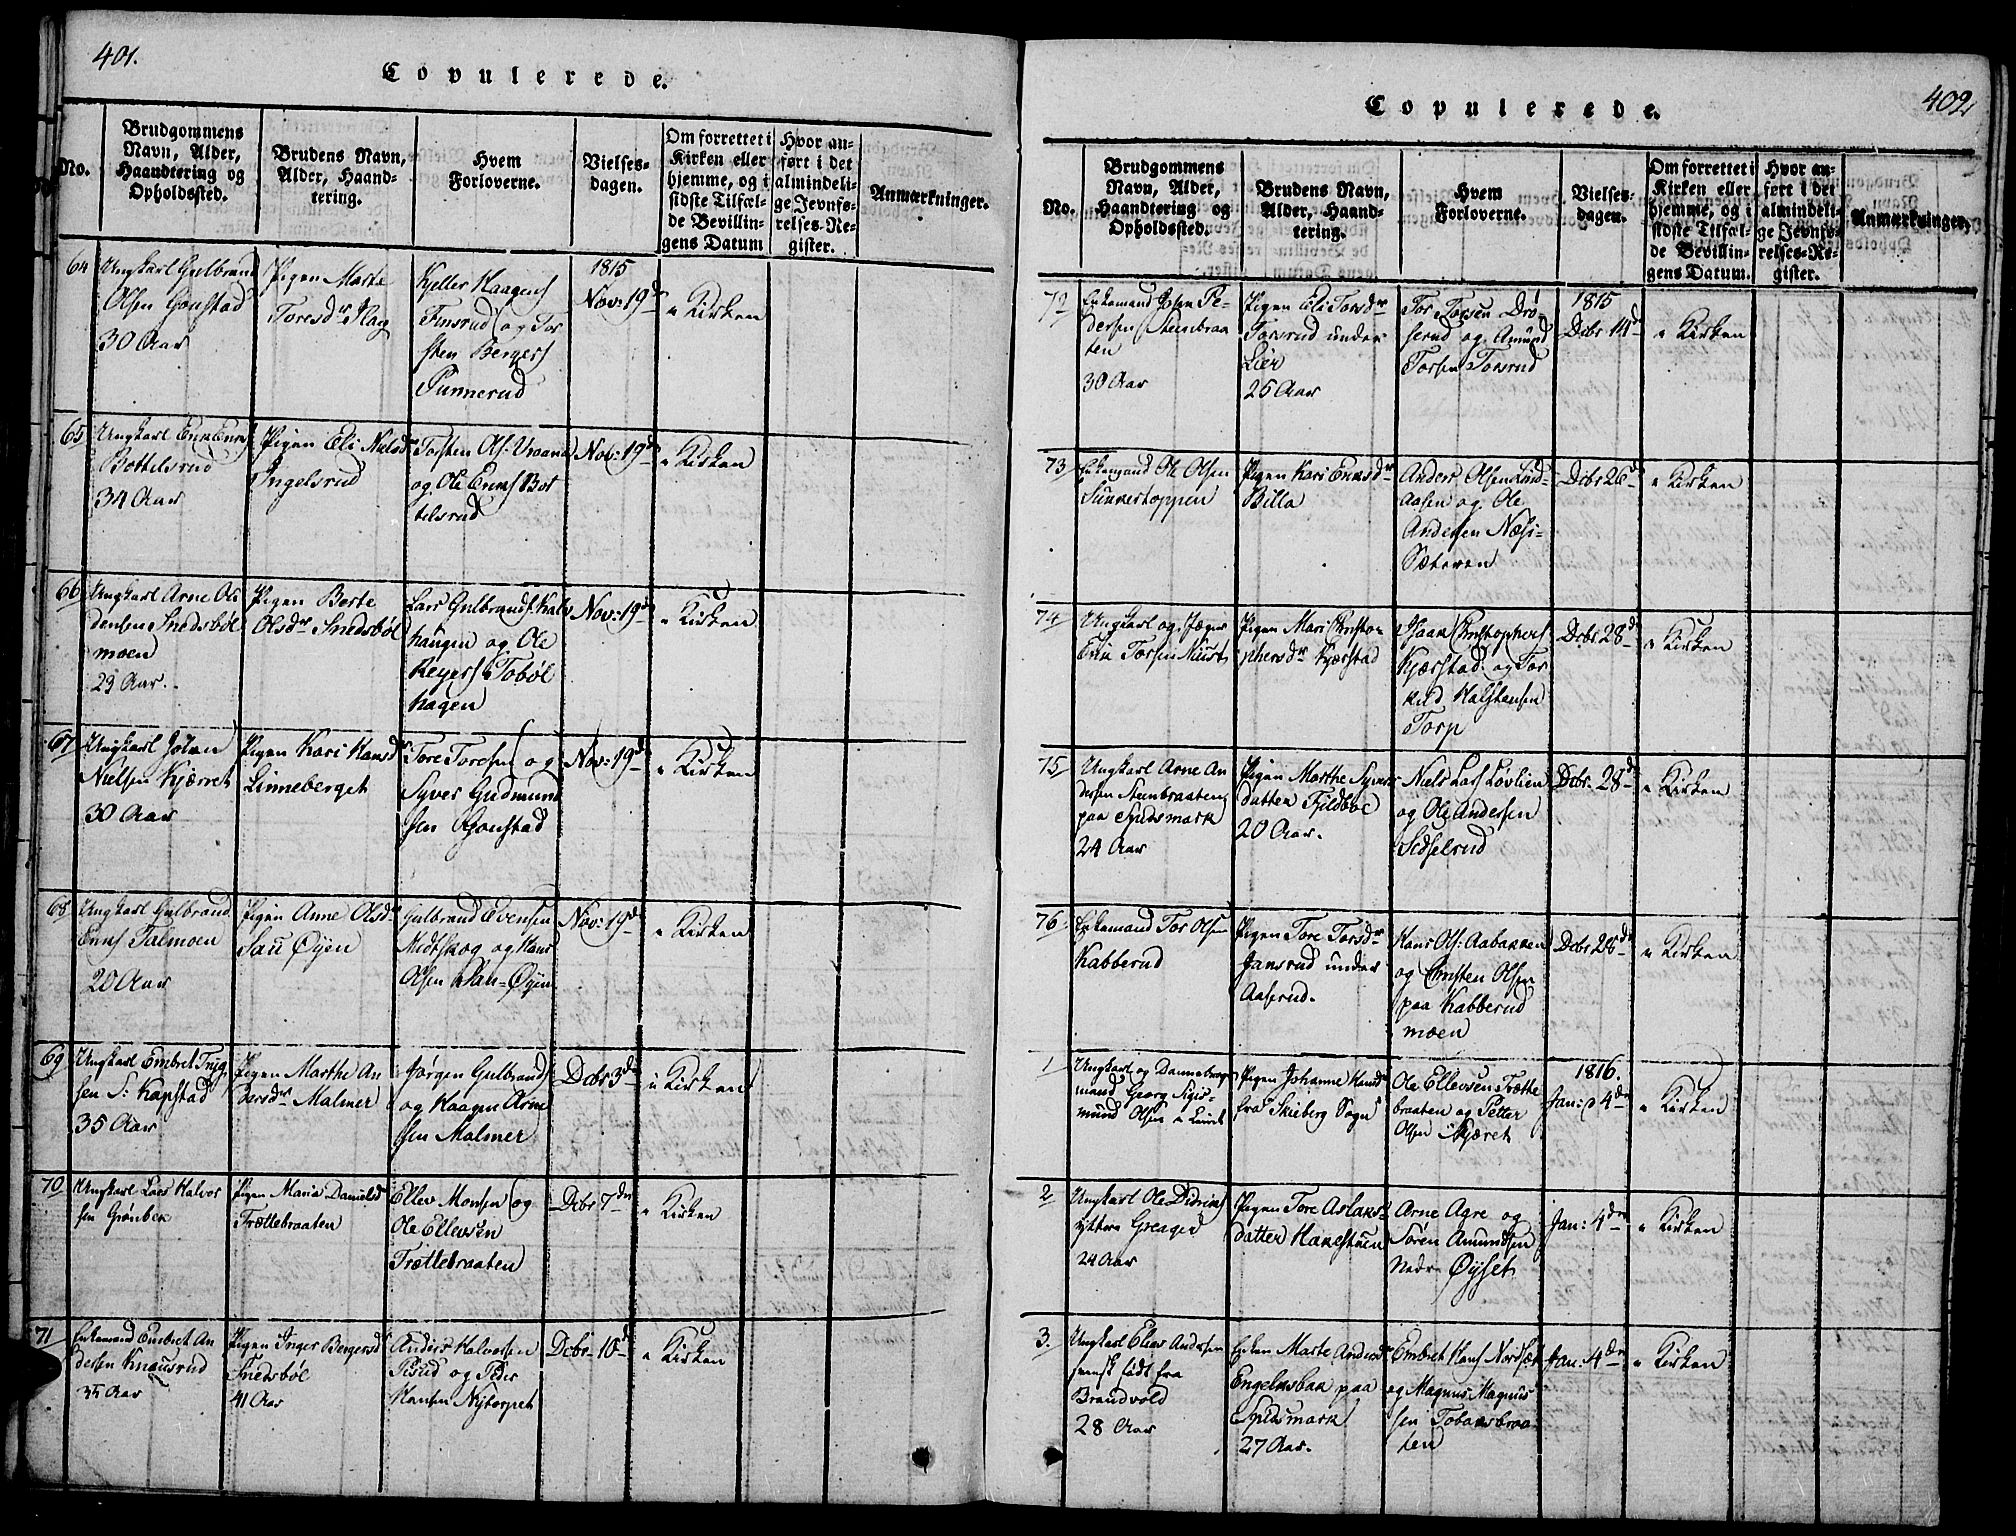 401.
Copulerede.
No.
Brudgommens
Navn, Alder,
Haandtering og
Opholdssted.
Brudens Navn,
Alder, Haand-
tering.
Hvem
Forloverne.
Vielses-
dagen.
Om forrettet i
Kirken eller
hjemme, og i
sidste Tilfæl-
de Bevillin-
gens Datum
Hvor an-
ført i det
almindeli-
ge Jevnfø-
relses-Re-
gister.
Anmærkninger.
64
Ungkarl Gulbrand
Olsen Gonstad
30 Aar
Pigen Marte
Toresdr Flag
Kjeller Haagens
Finsrud og Tor
sten Bergers
Punnerud
1815
Nov: 19d
i Kirken
65
Ungkarl
Bottelsrud
34 Aar
Pigen Eli Nielsd
Ingelsrud
Torsten Ols: Vraana
og Ole Enks Bot
telsrud
Nov: 19d
i Kirken
66
Ungkarl Arne Ols
densen Snedsböl
moen
29 Aar.
Pigen Berte
Olsdr Snedsböl
Lars Gulbrands Kalv
haugen og Ole
Reyers Tobøl
hagen
Nov: 19d
i Kirken
67
Ungkarl Johan
Nielsen Kjærret
30 Aar
Pigen Kari Hansd
Linneberget
Tore Toresen og
Syver Gudmund
sen Gonstad
Nov: 19d
i Kirken
68
Ungkarl Gulbrand
Enks Talmoen
20 Aar
Pigen Anne Olsdr
Sau Øyen
Gulbrand Evensen
Midtskog og Hans
Olsen Sau-Øyen
Nov: 19d
i Kirken
69
Ungkarl Embret Tryg
sen S: Kapstad
35 Aar
Pigen Marthe An
dersdr Malmer
Jørgen Gulbrand
og Haagen Arne
sen Malmer
Dcbr 3d
i Kirken
70
Ungkarl Lars Halvor
sen Grønbek
Pigen Maria Danielsd
Trættebraaten
Ellev Monsen og
Ole Ellevsen
Trættebraaten
Dcbr 7de
i Kirken
71
Enkemand Embret An
dersen Knausrud
35 Aar
Pigen Inger Bergersd
Snedsböl
41 Aar
Anders Halvorsen
Pisud og Peder
Hansen Nytorpet
Dcbr 10d
i Kirken
402
Copulerede.
No.
Brudgommens
Navn, Alder,
Haandtering og
Opholdssted.
Brudens Navn,
Alder, Haand-
tering.
Hvem
Forloverne.
Vielses-
dagen.
Om forrettet i
Kirken eller
hjemme, og i
sidste Tilfæl-
de Bevillin-
gens Datum.
Hvor an-
ført i det
almindeli-
ge Jevnfø-
relses-Re-
gister.
Anmærkninger.
72
Enkemand Johan Pe-
dersen Steenbraa
ten
30 Aar
Pigen Eli Torsdr
Torsrud under
Lier
25 Aar
Tor Torsen Drö-
serud og Amund
Torsen Torsrud
1815
Dcbr 14d
i Kirken
73
Enkemand Ole Olsen
Sunnertoppen
Pigen Kari Enksdr
Billa
Anders Olsen Lind-
aasen og Ole
Andersen Næss-
Sæteren
Dcbr 26d
i Kirken
74
Ungkarl og Jæger
Erik Torsen Must
Pigen Mari Christo-
phersdr Kjærstad
Isaak Christophers
Kjærstad og Tor
kild Halstensen
Torp
Dcbr 28d
i Kirken
75
Ungkarl Arne An
dersen Steenbraaten
paa Spidsmark
24 Aar
Pigen Marthe Syvers
datter Fjeldböe
20 Aar.
Niels Lars Lövlien
og Ole Andersen
Sidselrud
Dcbr. 28d
i Kirken
76
Enkemand Tor Olsen
Kabberud
Pigen Tore Torsdr
Jansrud under
Aaserud.
Hans Ols: Aabakken
og Christen Olsen
paa Kabberud
moen
Dcbr 28d
i Kirken
1
Ungkarl og Dannebrogs
mand Georg Sigis-
mund Olsen
Pigen Johanne Hansd
fra Skieberg Sogn
Ole Ellevsen Trætte
braaten og Petter
Olsen Kjæret
1816.
Jan: 4de
i Kirken
2
Ungkarl Ole Didriks
yttre Greaged
24 Aar
Pigen Tore Aslaks-
datter Hanestuen
Arne Agre og
Søren Amundsen
Nedre Øyset
Jan: 4de
i Kirken
3.
Ungkarl Elias Andersen
svensk födt fra
Brandvold
28 Aar
Enken Marte Andersd
Engelusbak paa
Spidsmark
27 Aar.
Embret Hans Nordset
og Magnus Magnus
sen Tobaksbraa
ten
Jan: 4de
i Kirken